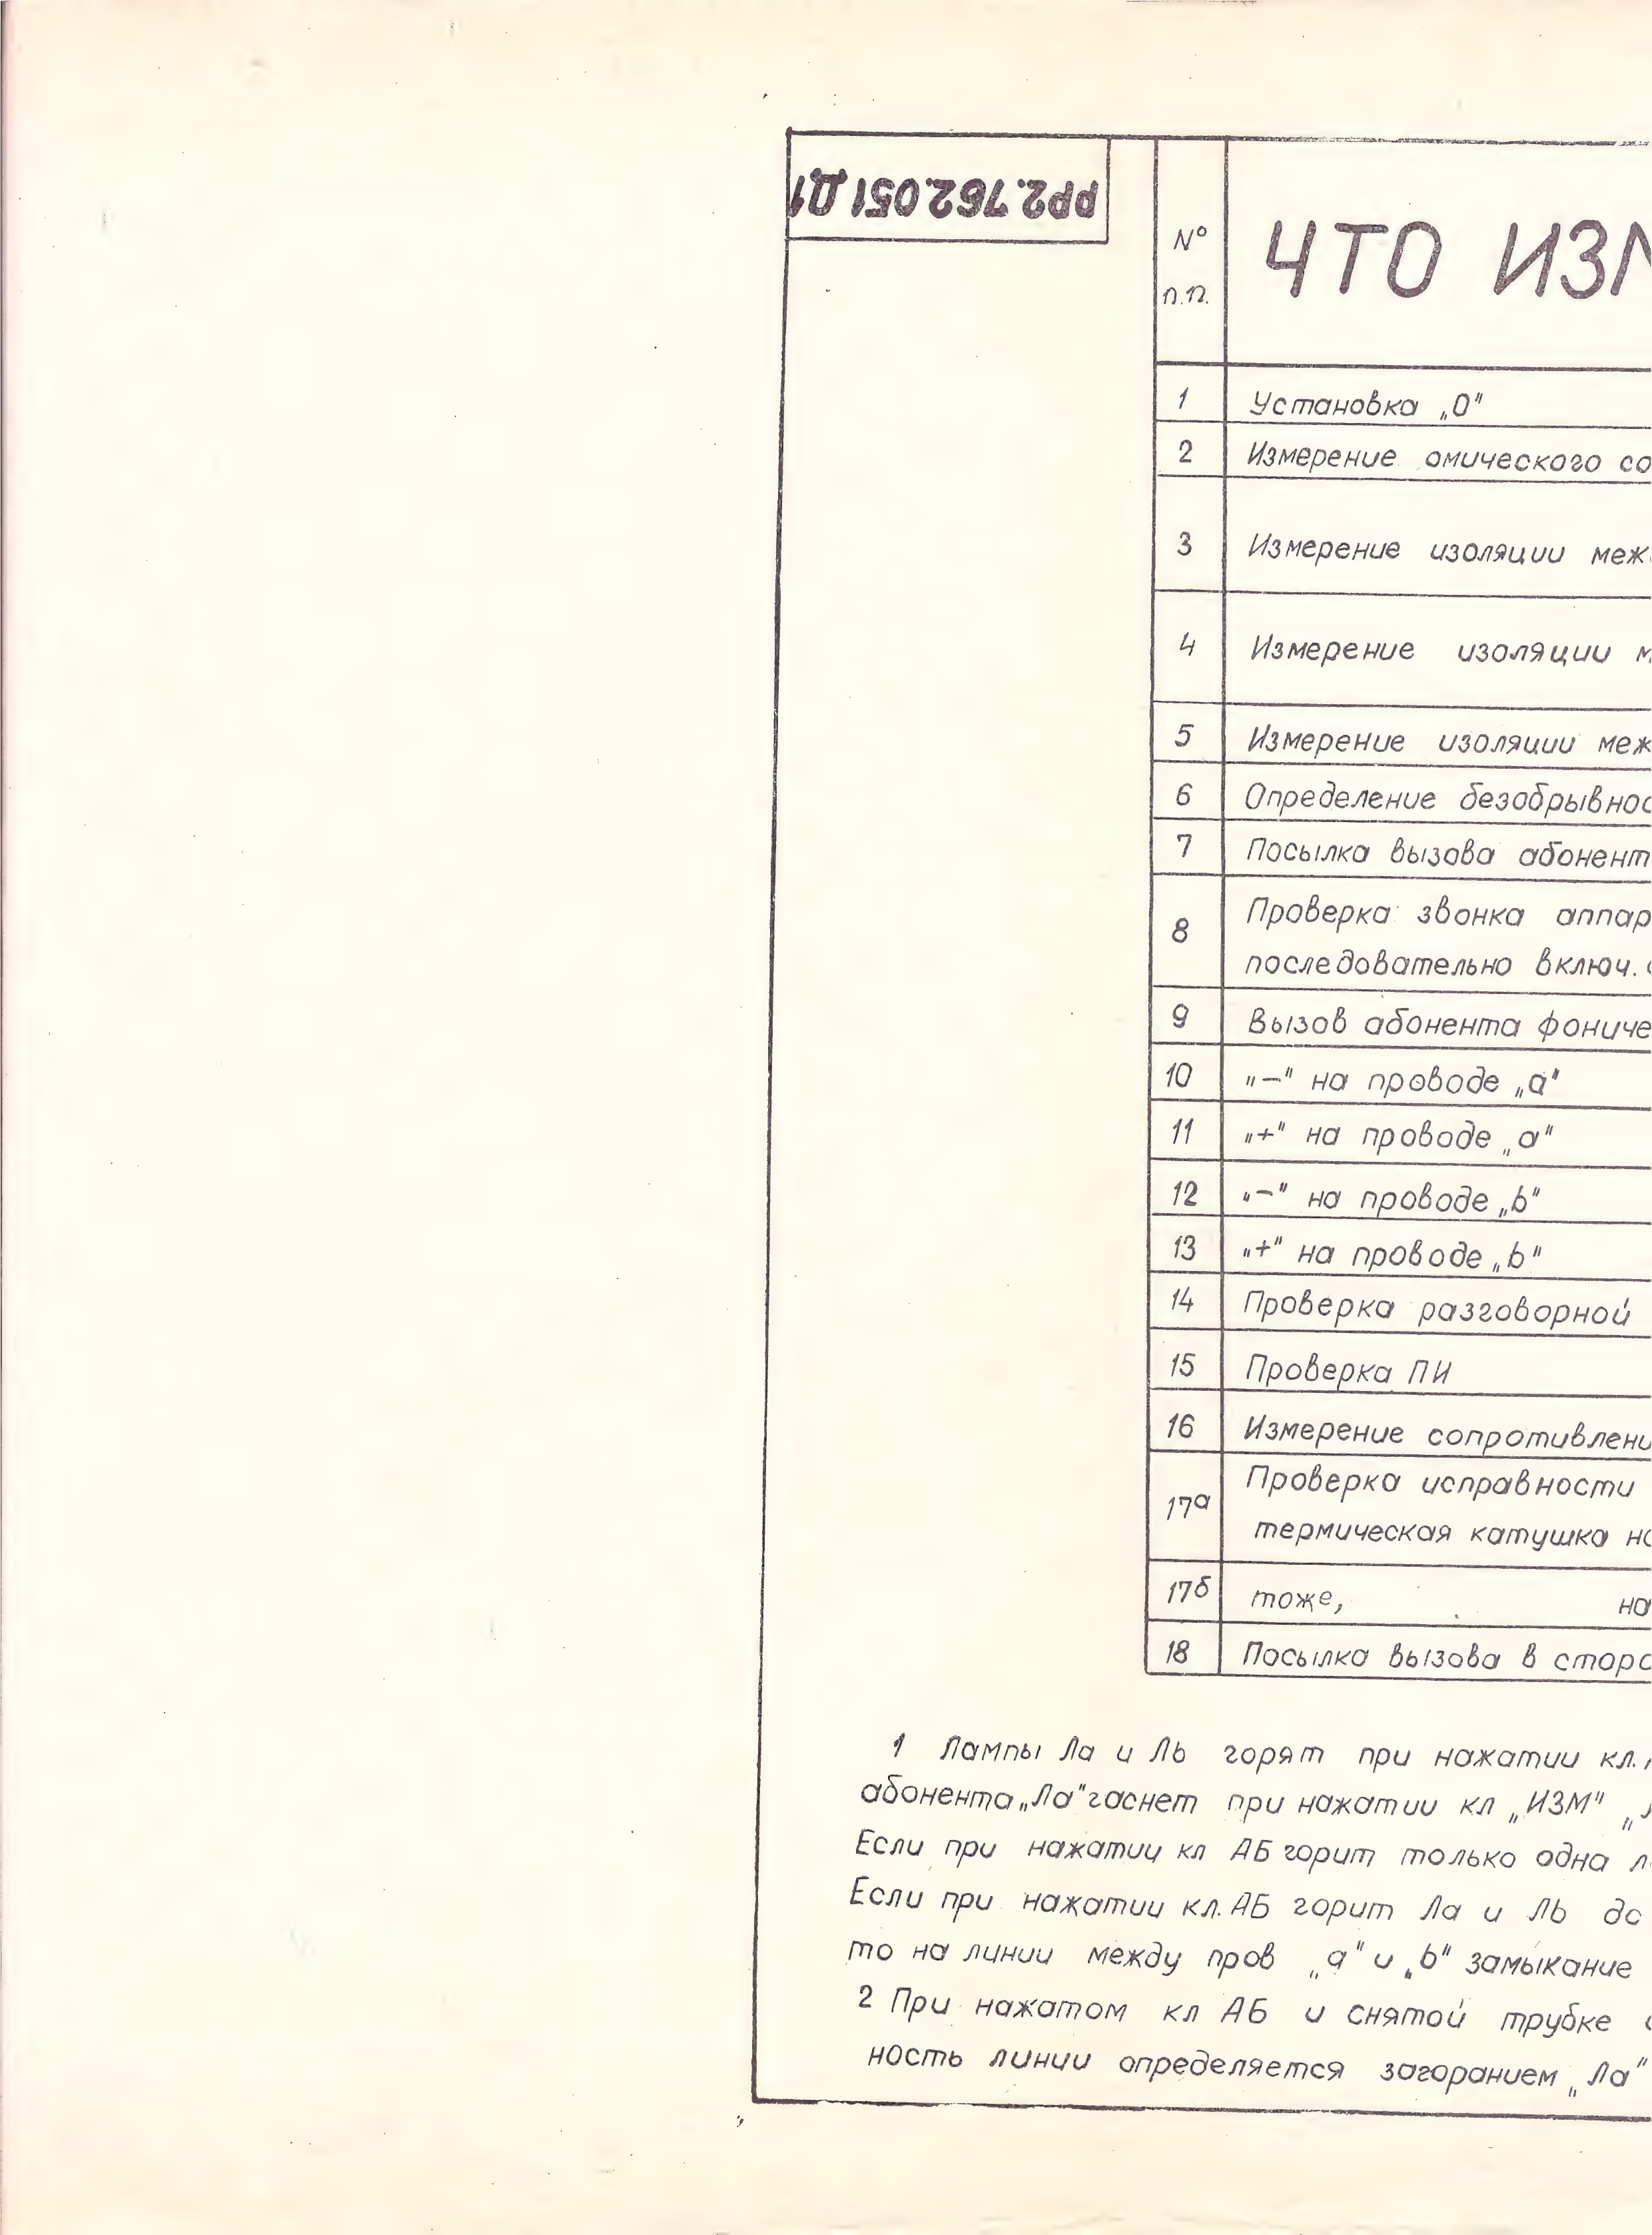 РР2.762.051Д1
№ п.п.
ЧТО ИЗМ
1 Установка „0"
2 Измерение омического со
3 Измерение изоляции меж
4 Измерение изоляции м
5 Измерение изоляции меж
6 Определение безобрывнос
7 Посылка вызова абонент
8 Проверка звонка аппар
последовательно включ.
9 Вызов абонента фониче
10 „–" на проводе „а"
11 „+" на проводе „а"
12 „–" на проводе „b"
13 „+" на проводе „b"
14 Проверка разговорной
15 Проверка ПИ
16 Измерение сопротивлени
17а Проверка исправности
термическая катушка на
17б тоже, на
18 Посылка вызова в сторо
1 Лампы Ла и Лb горят при нажатии кл.
абонента „Ла" гаснет при нажатии кл „ИЗМ"
Если при нажатии кл АБ горит только одна л
Если при нажатии кл. АБ горит Ла и Лb до
то на линии между пров „а" и „b" замыкание
2 При нажатом кл АБ и снятой трубке
ность линии определяется загоранием „Ла"